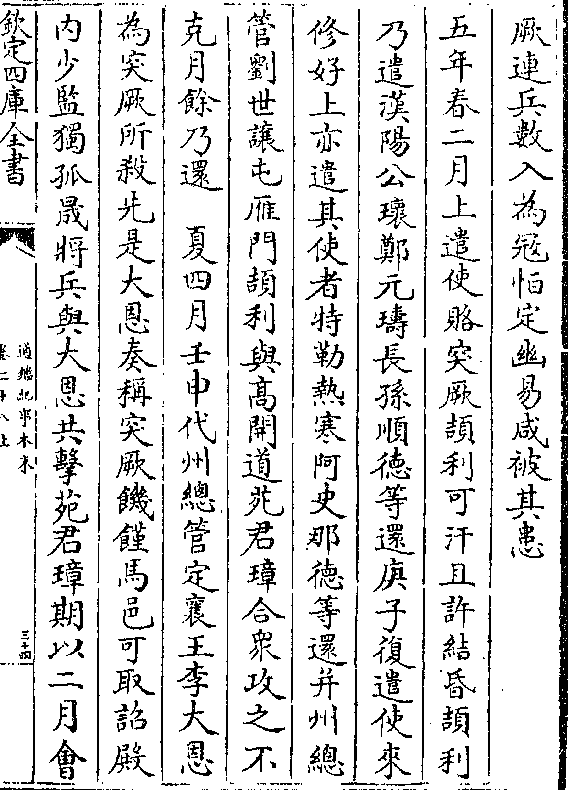 厥連兵數入為冦怕定幽易咸被其患
五年春二月上遣使賂突厥頡利可汗且許結昏頡利
乃遣漢陽公瓌鄭元璹長孫順德等還庚子復遣使來
修好上亦遣其使者特勒熱寒阿史那德等還并州總
管劉世讓屯雁門頡利與髙開道苑君璋合衆攻之不
克月餘乃還　夏四月壬申代州總管定襄王李大恩
為突厥所殺先是大恩奏稱突厥饑饉馬邑可取詔殿
内少監獨孤晟將兵與大恩共擊苑君璋期以二月會
欽定四庫全書
通鑑紀事本末
三十四